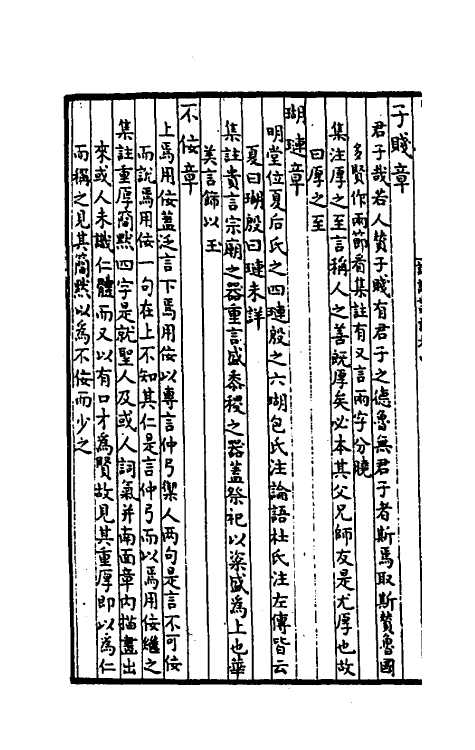 子賤章
君子哉若人贊子賤有君子之德魯無君子者斯焉取斯贊魯國
多賢作兩節看集註有又言兩字分曉
集注厚之至言稱人之善既厚矣必本其父兄師友是尤厚也故
曰厚之至
瑚璉章
明堂位夏后氏之四璉殷之六瑚包氏注論語杜氏注左傳皆云
夏曰瑚殷曰璉未詳
集註貴言宗廟之器重言盛黍稷之器蓋祭祀以粢盛為上也華
美言飾以玉
不佞章
上焉用佞蓋泛言下焉用佞以專言仲弓禦人两句是言不可佞
而説焉用佞一句在上不知其仁是言仲弓而以焉用佞繼之
集註重厚簡黙四字是就聖人及或人詞氣并南面章内描畫出
來或人未識仁體而又以有口才為賢故見其重厚即以為仁
而稱之見其簡黙以為不佞而少之